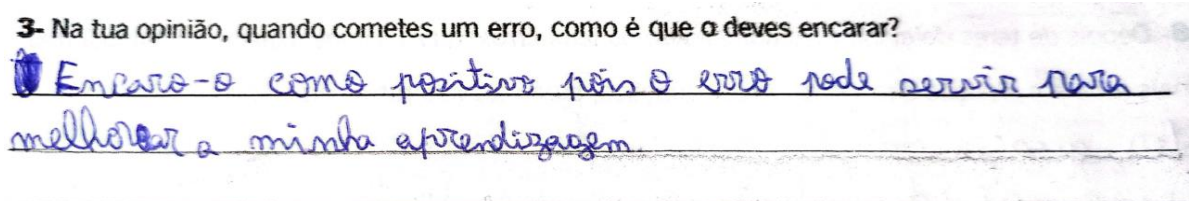 3- Na tua opinião, quando cometes um erro, como é que o deves encarar?
Encaro-o como positivo pois o erro pode servir para
melhorar a minha aprendizagem.